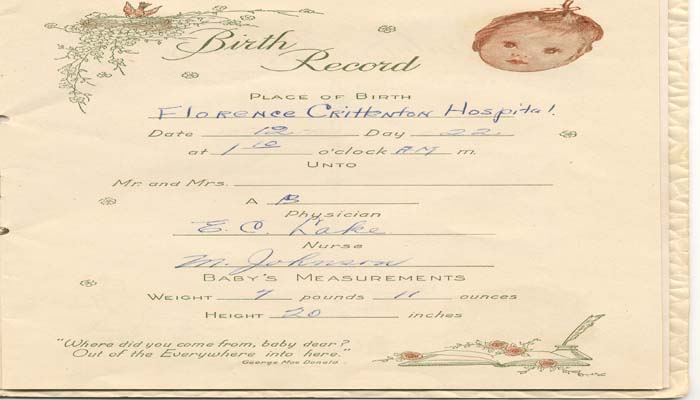 Birth Record
PLACE OF BIRTH
Florence Crittenton Hospital.
Date 12 Day 22
at 1 10 o'clock AM m.
UNTO
Mr. and Mrs.
A B
Physician
E. C. Lake
Nurse
M. Johnson
BABY'S MEASUREMENTS
WEIGHT 7 pounds 11 ounces
HEIGHT 20 inches
"Where did you come from, baby dear?
Out of the Everywhere into here."
George Mac Donald.